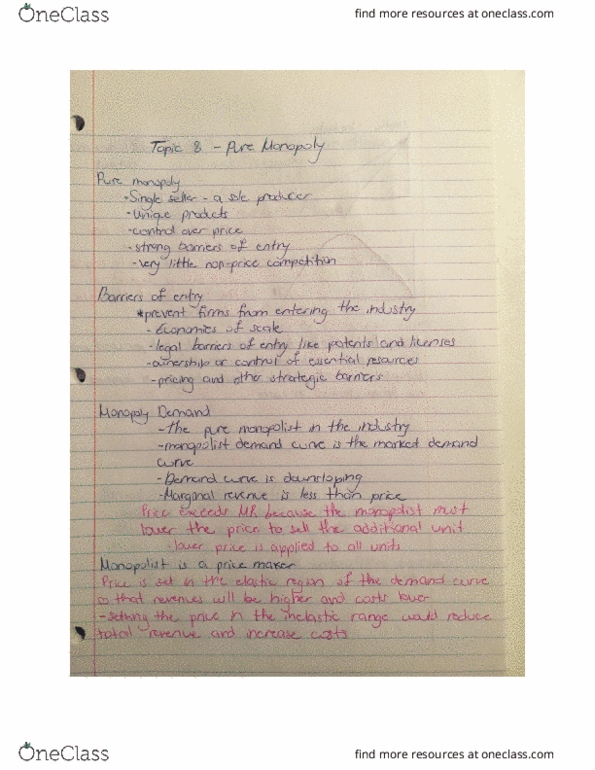 OneClass
find more resources at oneclass.com
Topic 8 - Pure Monopoly
Pure monopoly
- Single seller - a sole producer
- Unique products
- control over price
- strong barriers of entry
- very little non-price competition
Barriers of entry
*prevent firms from entering the industry
- Economics of scale
- legal barriers of entry like patents and licenses
- ownership or control of essential resources
- pricing and other strategic barriers
Monopoly Demand
- the pure monopolist in the industry
- monopolist demand curve is the market demand
curve
- Demand curve is downsloping
- Marginal revenue is less than price
Price exceeds MR because the monopolist must
lower the price to sell the additional unit
- lower price is applied to all units
Monopolist is a price maker
Price is set in the elastic region of the demand curve
so that revenues will be higher and costs lower
- setting the price in the inelastic range would reduce
total revenue and increase costs
OneClass
find more resources at oneclass.com